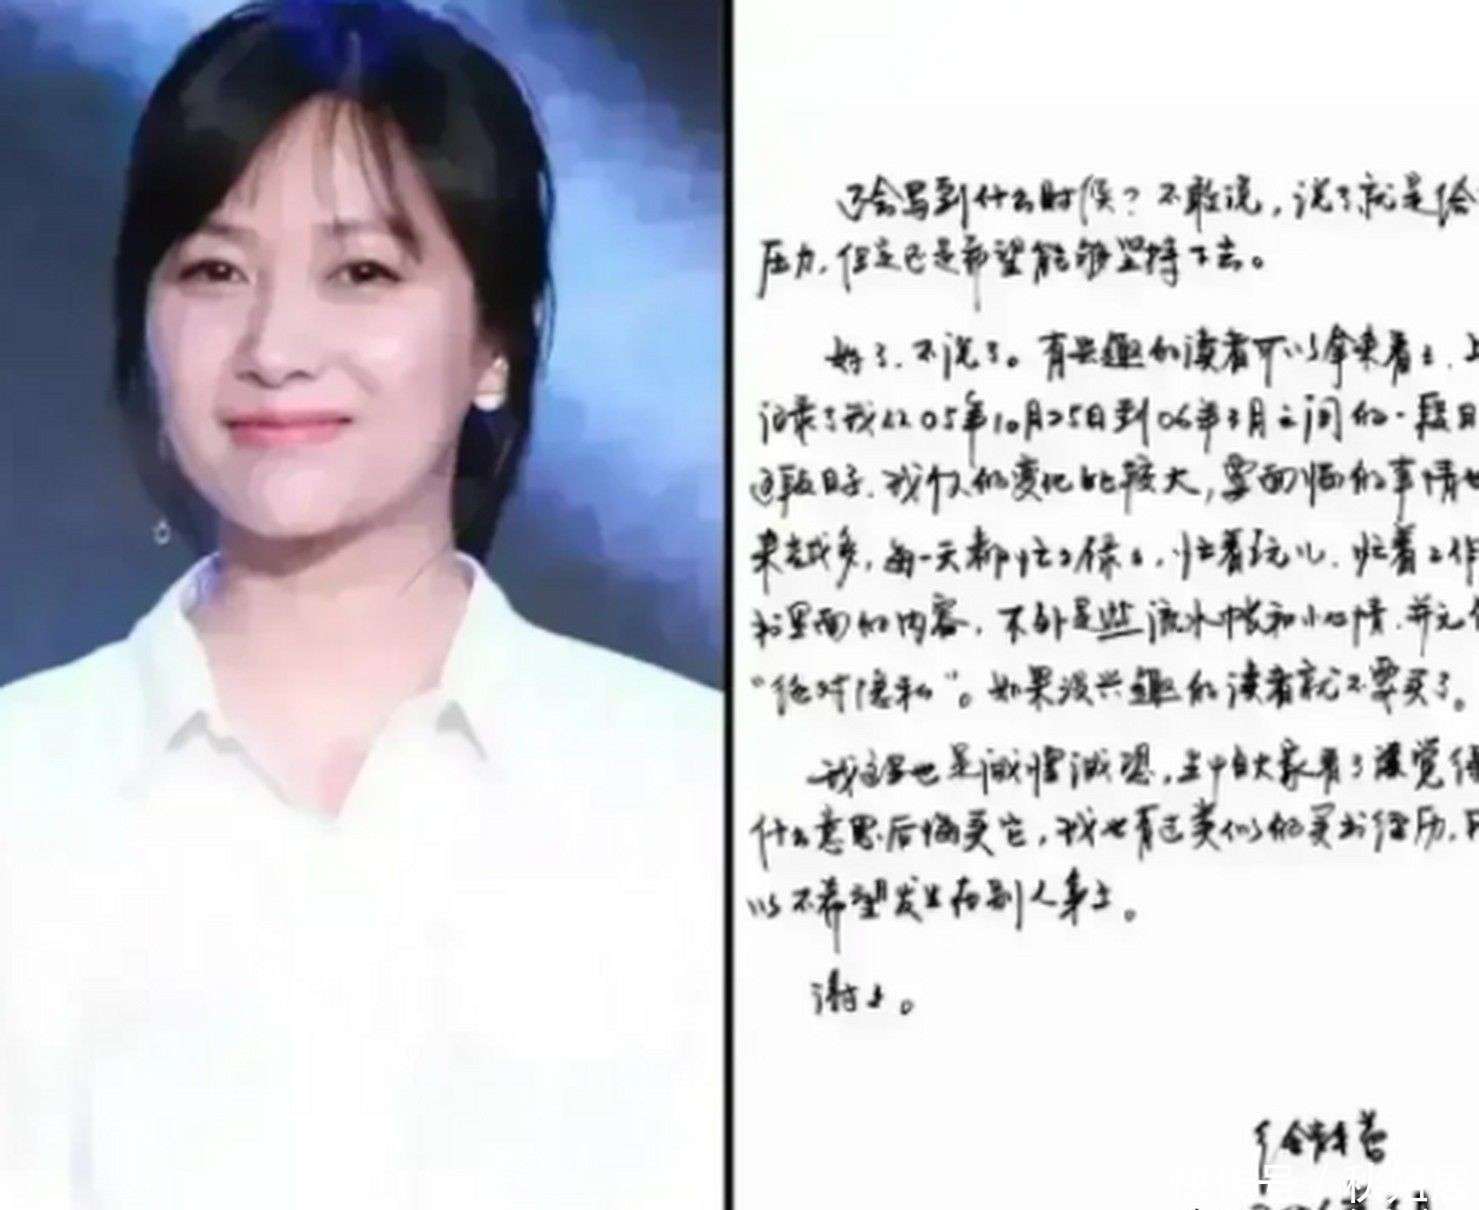 会写到什么时候？不敢说，说了就是给
压力，但是还是希望能够坚持下去。
好了，不说了。有兴趣的读者可以拿来看看，
记录了我从05年10月25日到06年3月之间的一段日
这段日子，我们的变化比较大，要面临的事情
来越多，每一天都忙忙碌碌，忙着玩儿，忙着工作
书里面的内容，不外是些流水帐和小心情，并无
“绝对隐私”。如果没兴趣的读者就不要买了。
我这里也是诚惶诚恐，生怕大家看了感觉
什么意思后悔买它，我也有过类似的买书经历，
以不希望发生在别人身上。
谢谢。
徐静蕾